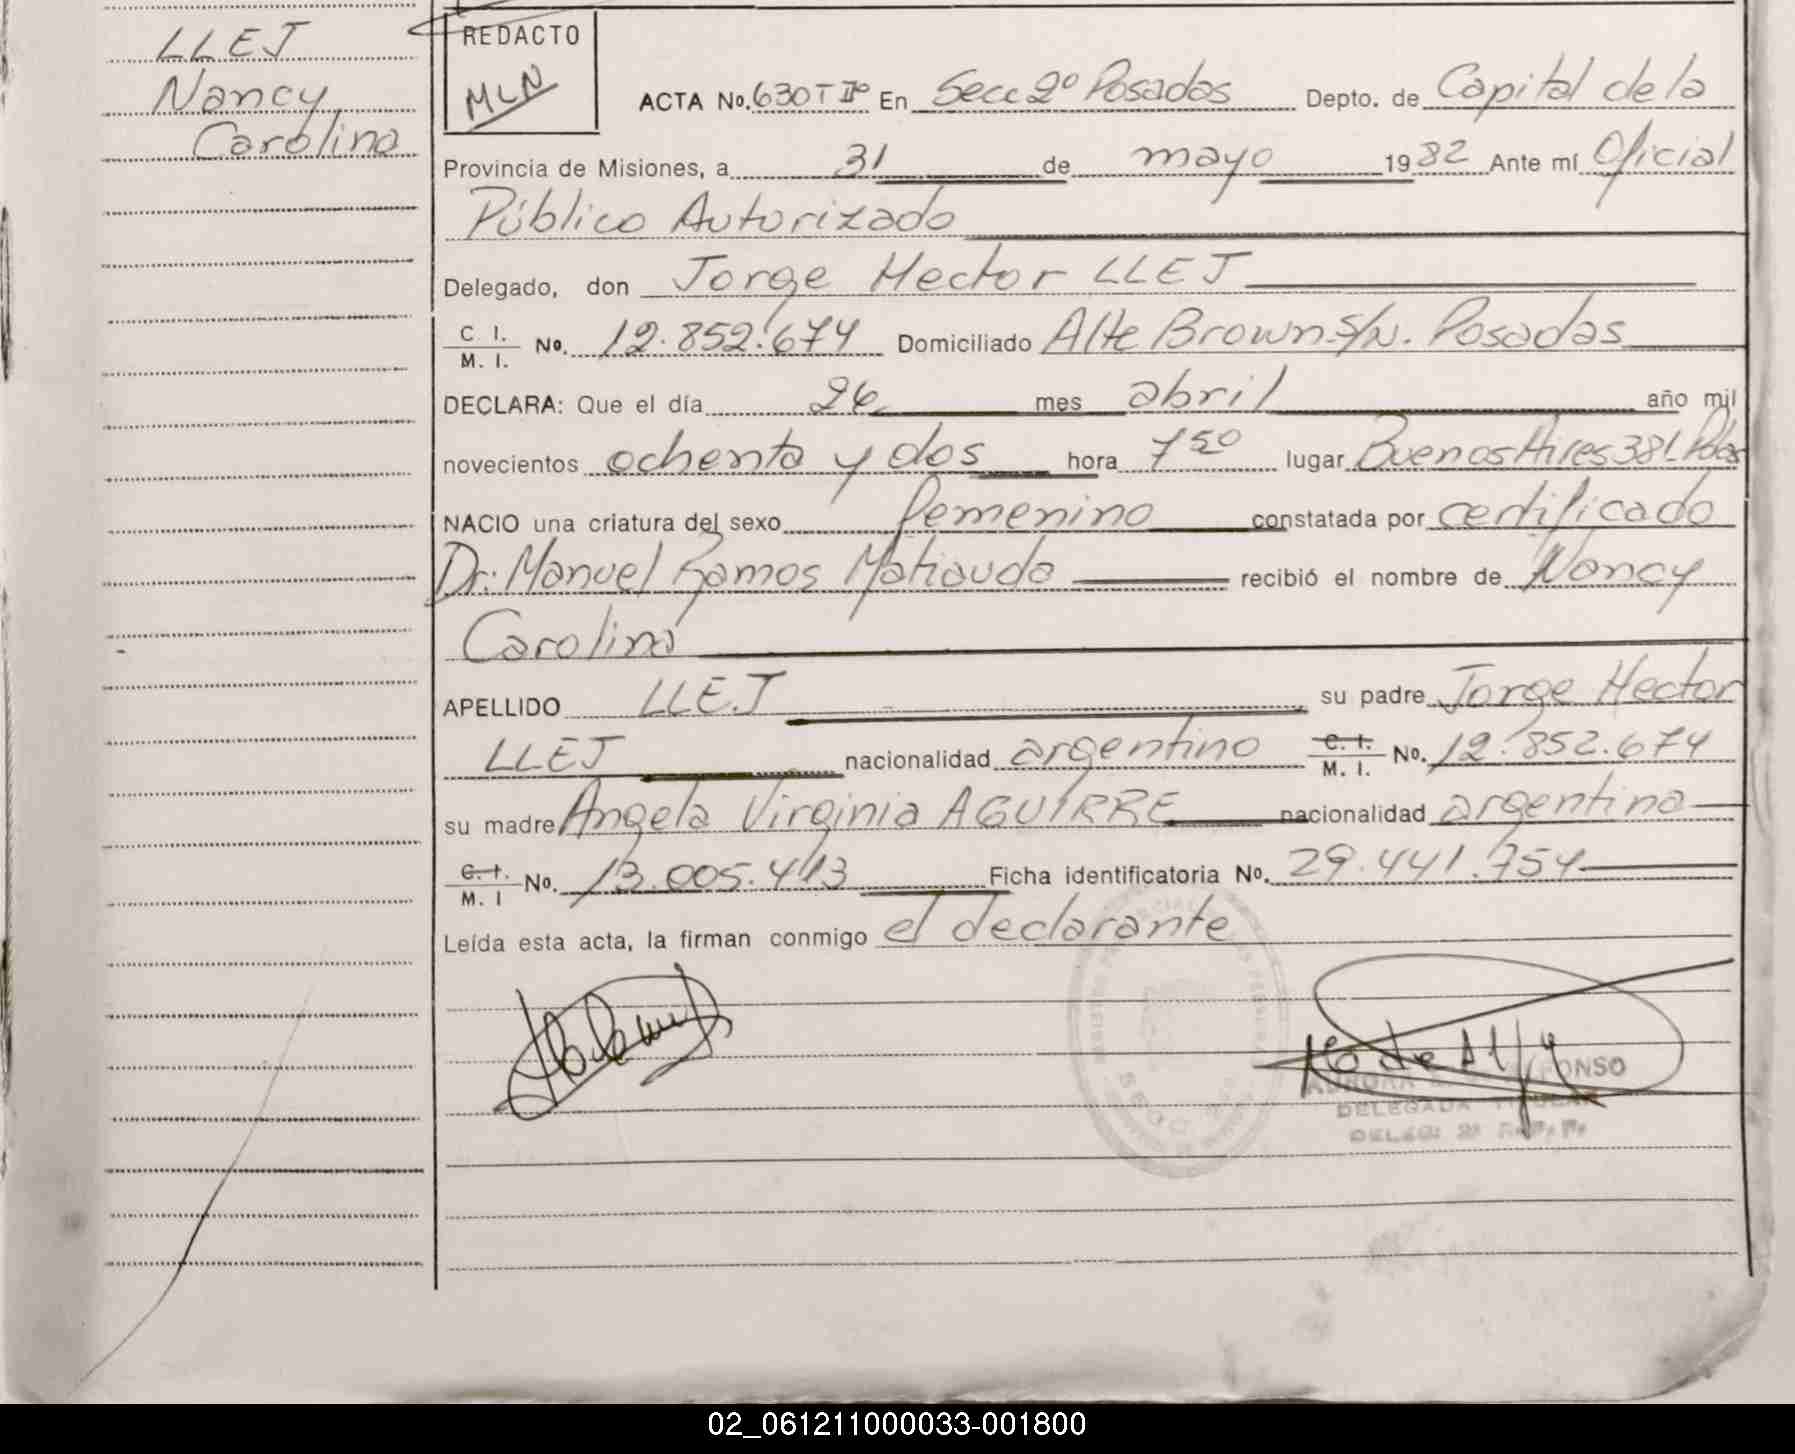 LLEJ
Nancy
Carolina
REDACTO
MLN
ACTA No. 630 T IIº En Secc 2º Posadas Depto. de Capital de la
Provincia de Misiones, a 31 de mayo 1982 Ante mí Oficial
Público Autorizado
Delegado, don Jorge Hector LLEJ
C. I. / M. I. No. 12.852.674 Domiciliado Alte Brown S/N. Posadas
DECLARA: Que el día 26 mes abril año mil
novecientos ochenta y dos hora 7 50 lugar Buenos Aires 381 Pdas
NACIO una criatura del sexo femenino constatada por certificado
Dr. Manuel Ramos Matiauda recibió el nombre de Nancy
Carolina
APELLIDO LLEJ su padre Jorge Hector
LLEJ nacionalidad argentino C. I. / M. I. No. 12.852.674
su madre Angela Virginia AGUIRRE nacionalidad argentina
C. I. / M. I No. 13.005.413 Ficha identificatoria No. 29.441.754
Leída esta acta, la firman conmigo el declarante
AURORA FONSO
DELEGADA TITULAR
02_061211000033-001800